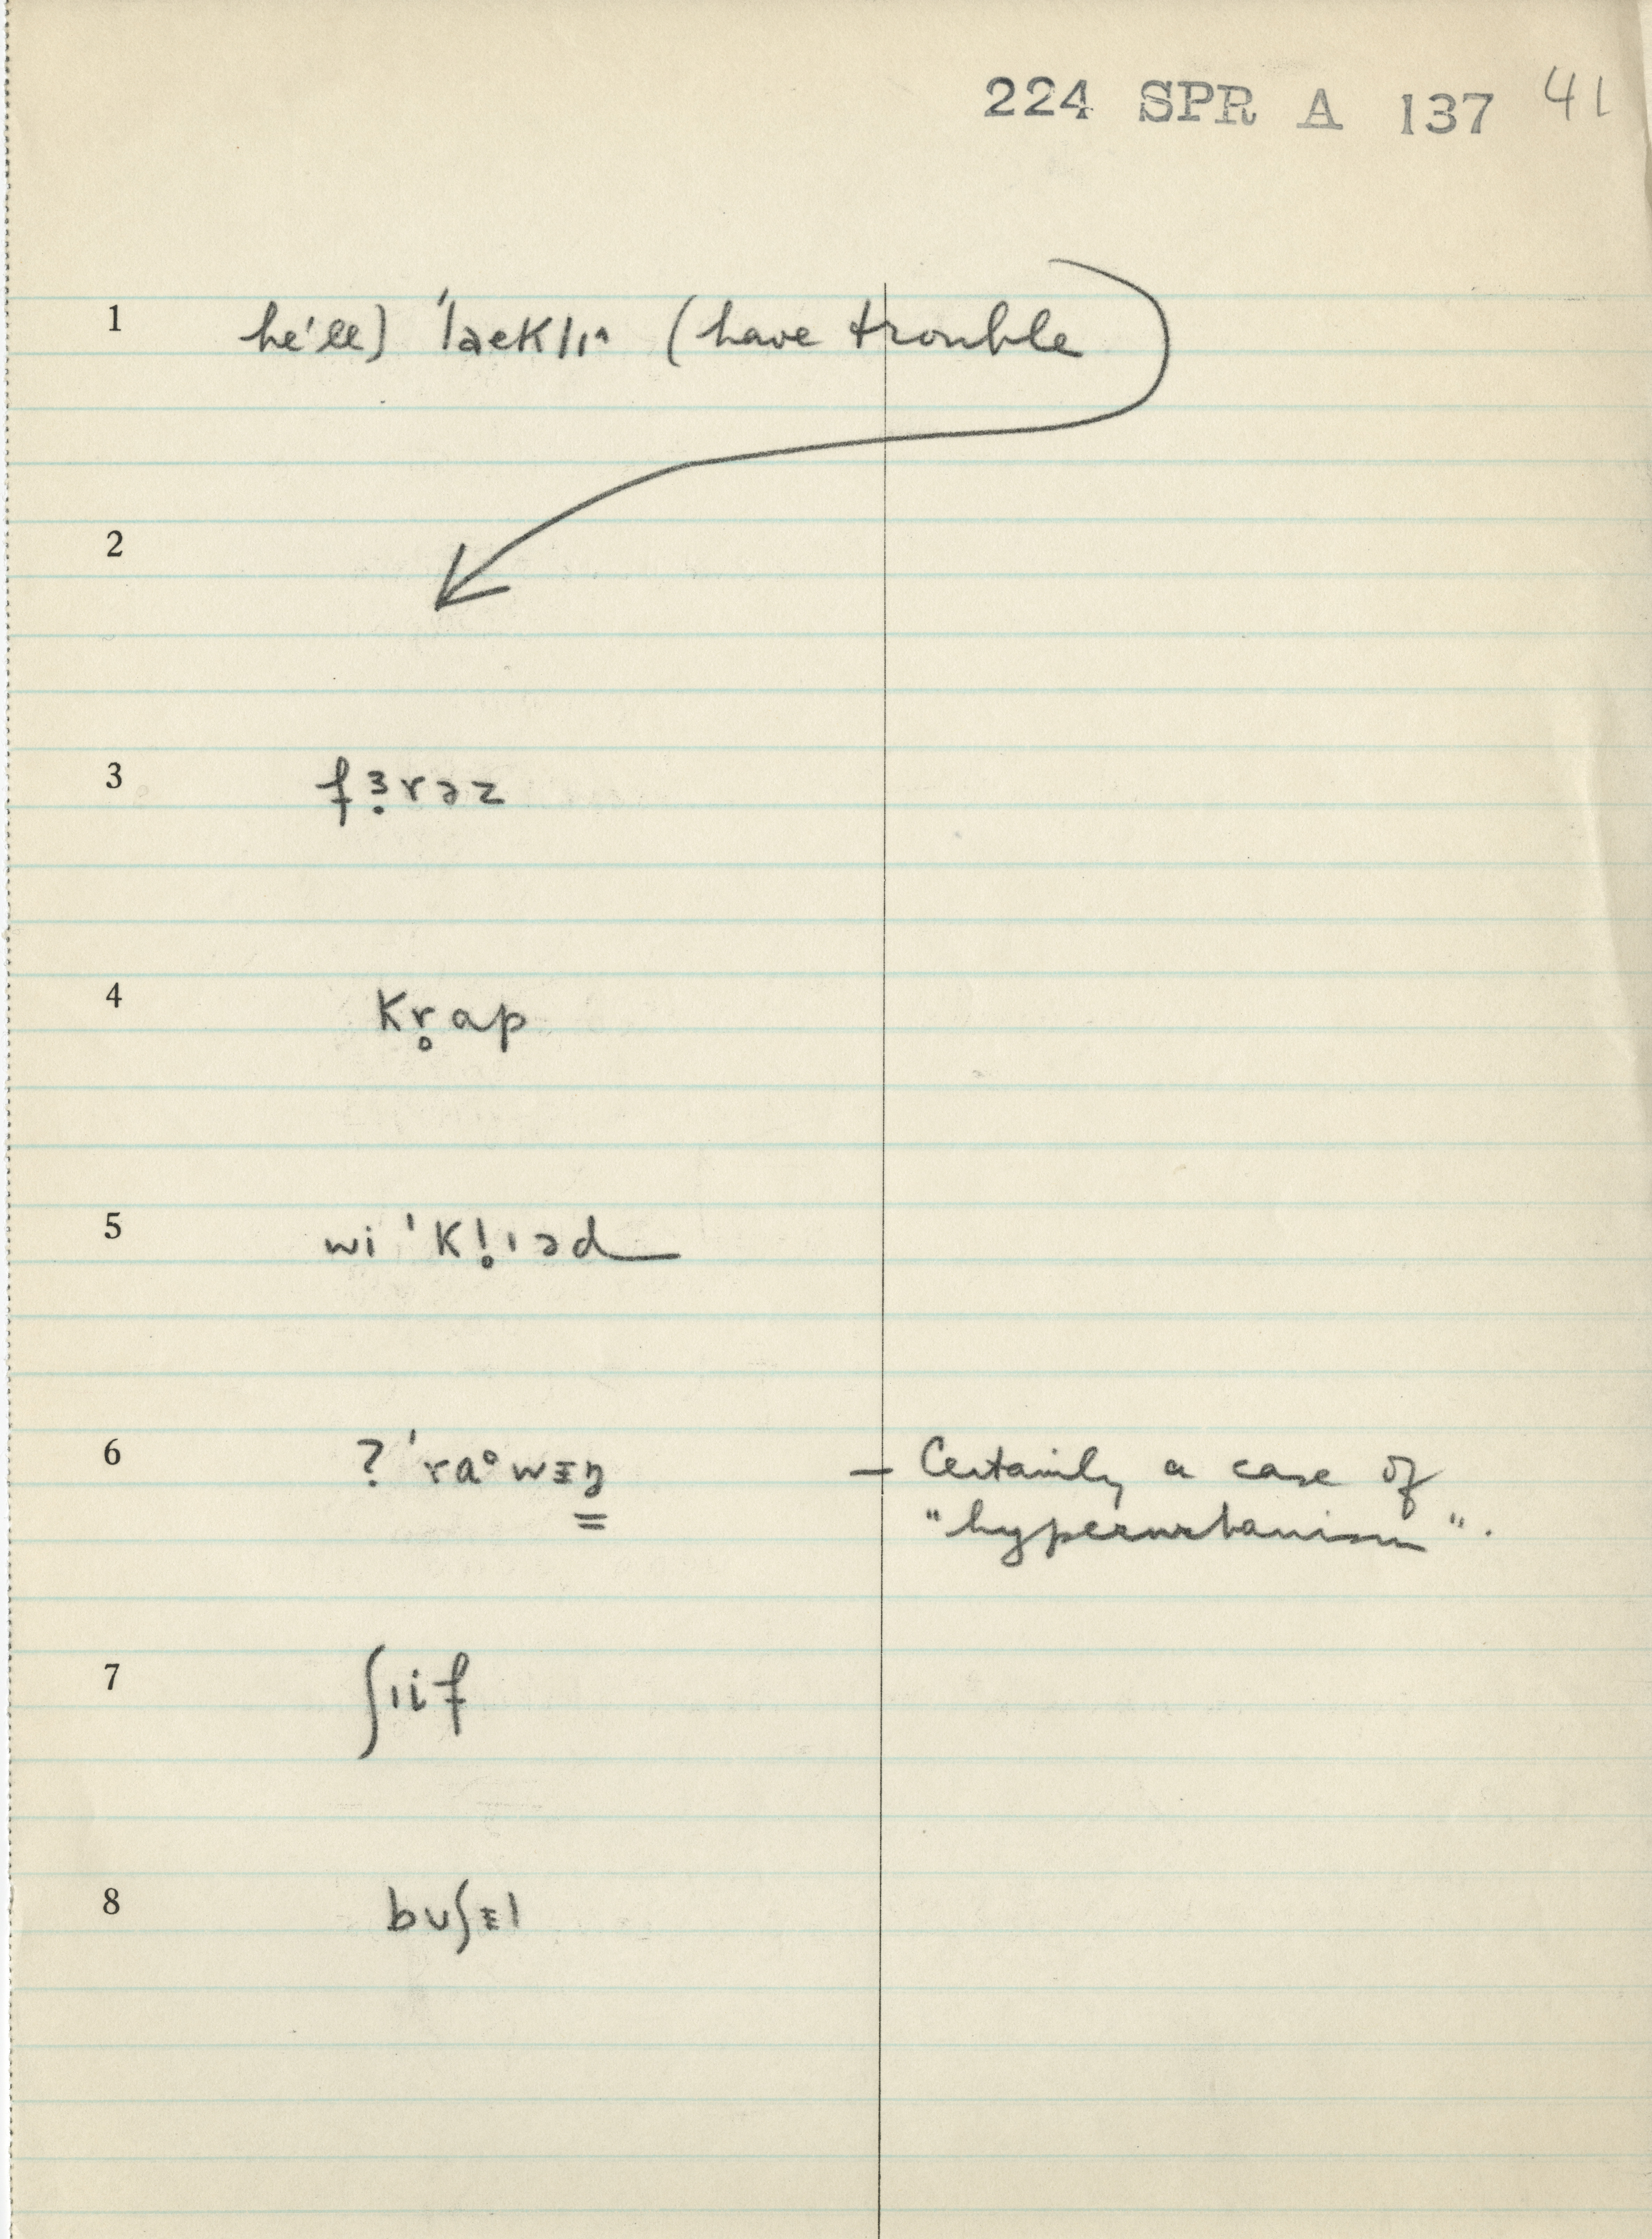 224 SPR A 137 41
1 he'll) 'laeklɪ^ (have trouble
2
3 fɜ̣rəz
4 kr̥ap
5 wi 'kl̥ɪəd
6 ? 'ra°wɪŋ — Certainly a case of
"hyperurbanism".
7 ʃɪif
8 bʊʃɪl